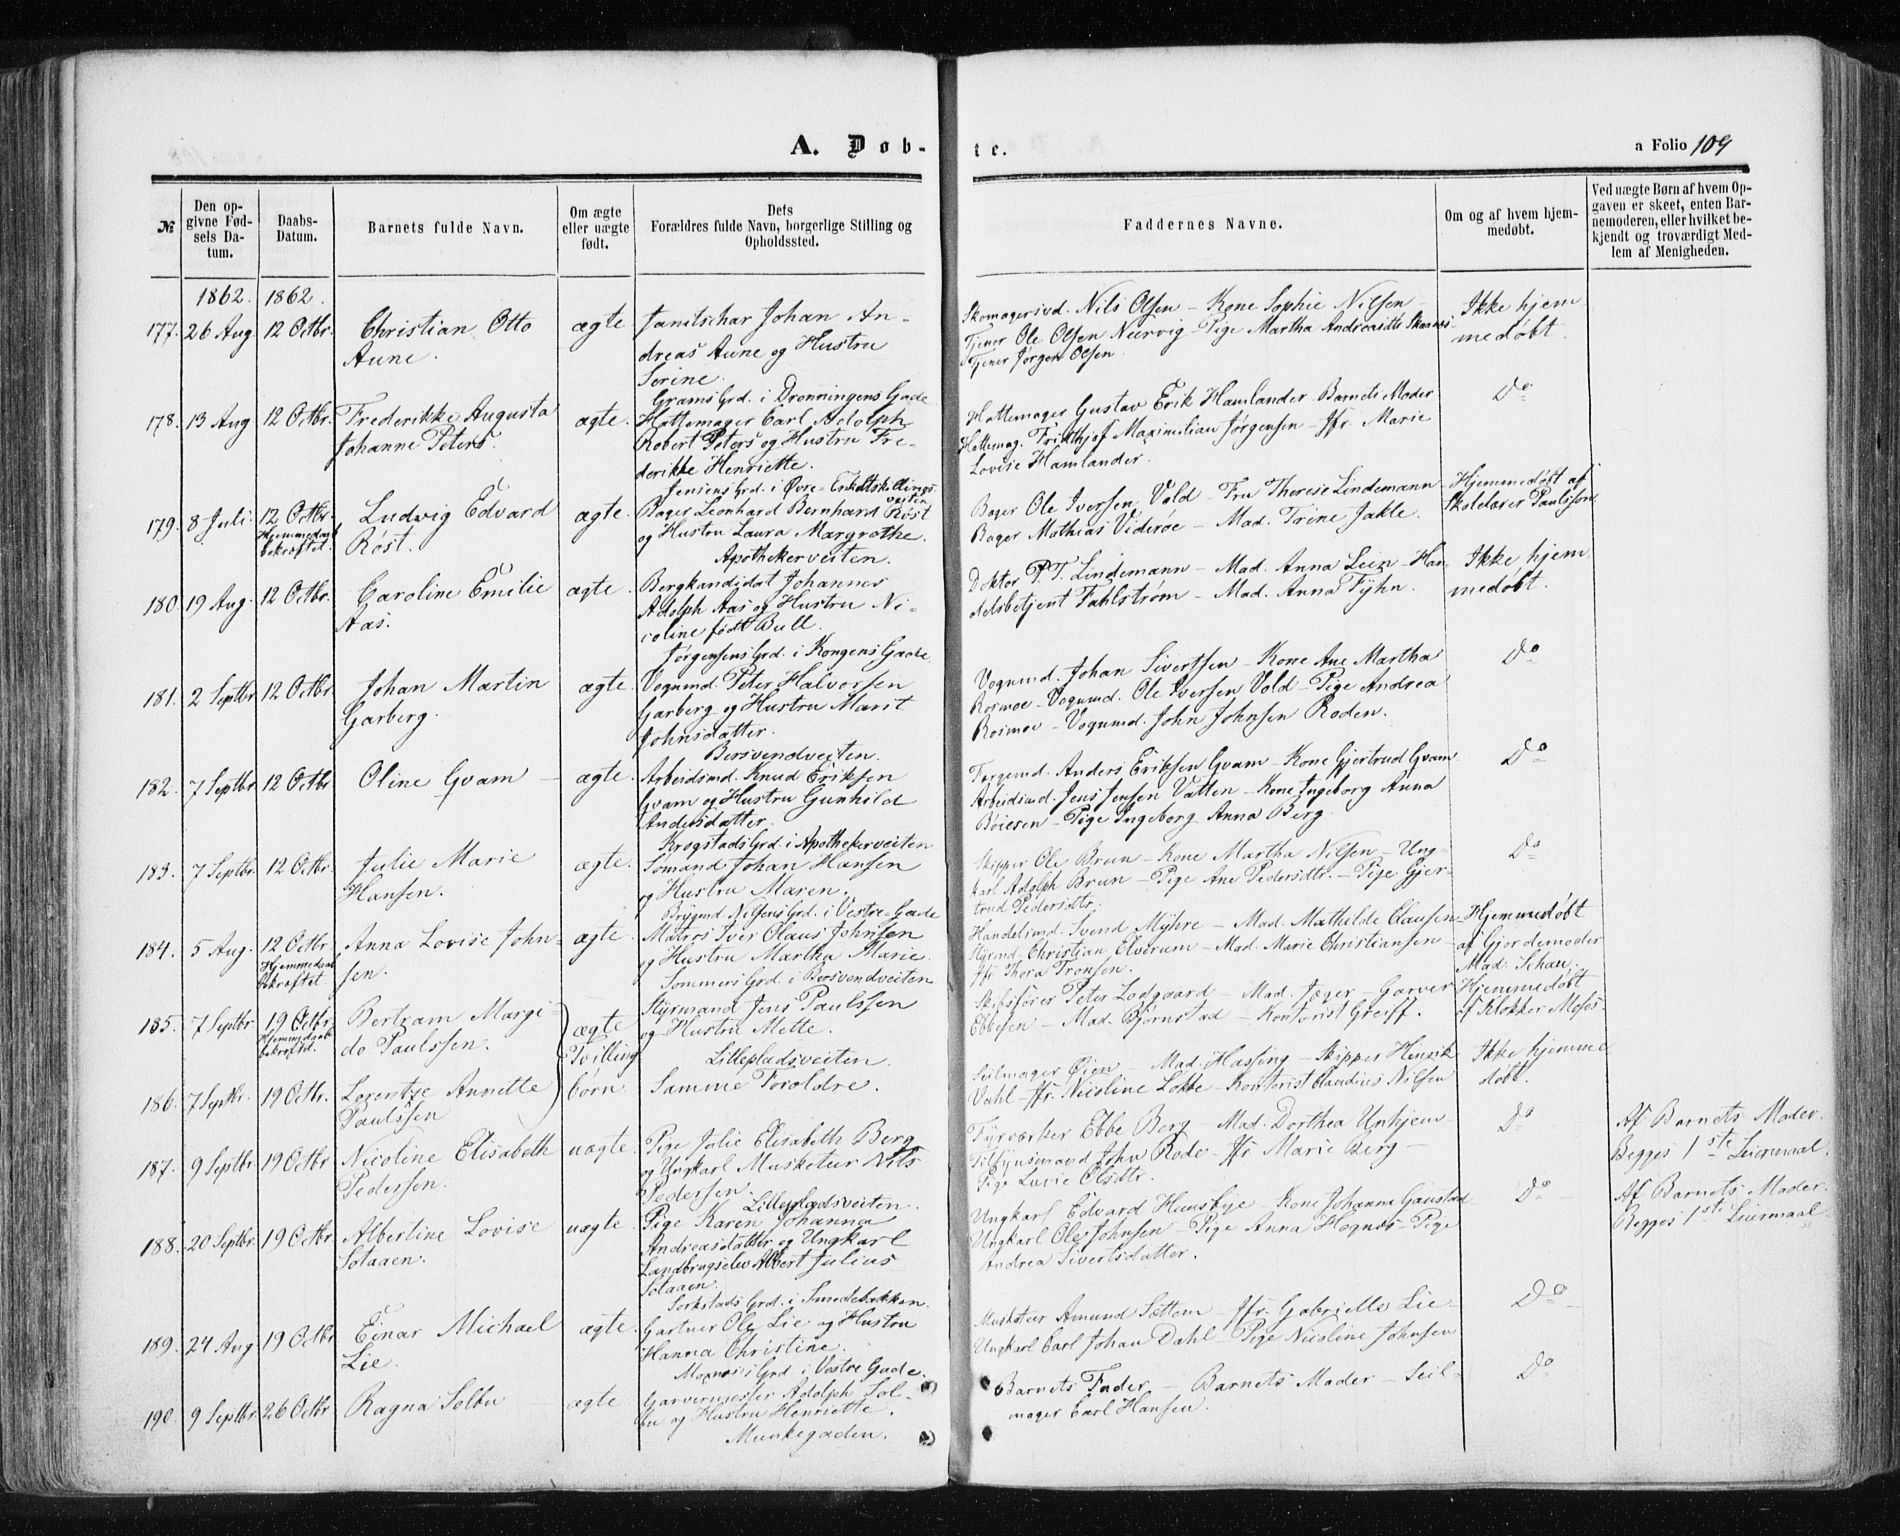 A. Døb-
te.
a Folio 109
№
Den opgivne Fødsels Datum.
Daabs-Datum.
Barnets fulde Navn.
Om ægte eller uægte født.
Dets Forældres fulde Navn, borgerlige Stilling og Opholdssted.
Faddernes Navne.
Om og af hvem hjemmedøbt.
Ved uægte Børn af hvem Opgaven er skeet, enten Barnemoderen, eller hvilket bekjendt og troværdigt Medlem af Menigheden.
1862. 1862.
177. 26 Aug 12 Octbr. Christian Otto ægte Janitschar Johan An- Skomagersvd. Nils Olsen - Kone Sophie Nilsen - Ikke hjem
Aune. dreas Aune og Hustru Tjener Ole Olsen Nervig - Pige Martha Andreasdtr medøbt.
Serine. Tjener Jørgen Olsen.
Grams Grd. i Dronningens Gade
178. 13 Aug 12 Octbr. Frederikke Augusta ægte. Hattemager Carl Adolph Hattemager Gustav Erik Hamlander - Barnets Moder Do
Johanne Peters. Robert Peters og Hustru Fre- Hattemag. Frithjof Maximilian Jørgensen - Jfr. Marie
derikke Henriette. Lovise Hamlander.
Jensens Grd. i Øvre-Enkeltskillings-
veiten
179. 8 Juli 12 Octbr. Ludvig Edvard ægte. Bager Leonhard Bernhard Röst Bager Ole Iversen Vold - Fru Therese Lindemann - Hjemmedøbt af
Hjemmedaab Röst. og Hustru Laura Margrethe. Bager Mathias Viderøe - Mad. Trine Jakle. Skolelærer Paulsson
bekræftet. Apothekerveiten.
180. 19 Aug. 12 Octbr. Caroline Emilie ægte. Bergkandidat Johannes Doktor P. T. Lindemann - Mad. Anna Lein - Han- Ikke hjem
Aas. Adolph Aas og Hustru Ni- delsbetjent Fahlstrøm - Mad. Anna Fyhn. medøbt.
coline født Bull.
Jørgensens Grd. i Kongens Gade
181. 2 Septbr 12 Octbr Johan Martin ægte. Vognmd. Peter Halvorsen Vognmd. Johan Sivertsen - Kone Ane Martha Do
Garberg. Garberg og Hustru Marit Rosmoe - Vognmd. Ole Iversen Vold - Pige Andrea
Johnsdatter. Rosmoe - Vognmd. John Johnsen Roden.
Bersvendveiten.
182. 7 Septbr 12 Octbr Oline Gvam - ægte. Arbeidsmd. Knud Eriksen Torgemd. Anders Eriksen Gvam - Kone Gjertrud Gvam Do
Gvam og Hustru Gunhild Arbeidsmd. Jens Jensen Vatten - Kone Ingeborg Anna
Andersdatter. Boiesen - Pige Ingeborg Anna Berg.
Krogstads Grd. i Apothekerveiten
183. 7 Septbr. 12 Octbr. Julie Marie ægte. Sømand Johan Hansen Skipper Ole Brun - Kone Martha Nilsen - Ung- Do
Hansen. og Hustru Maren. karl Adolph Brun - Pige Ane Pedersdtr. - Pige Gjer-
trud Pedersdtr.
Brygmd Nilsens Grd. i Vestre-Gade
184. 5 Aug. 12 Octbr Anna Lovise John- ægte. Matros Iver Olaus Johnsen Handelsmd. Svend Myhre - Mad. Mathilde Clausen - Hjemmedøbt
Hjemmedaab sen. og Hustru Martha Marie. Styrmd. Christian Elverum - Mad. Marie Christiansen - af Gjordemoder
bekræftet. Sommers Grd. i Bersvendveiten Jfr. Thora Tronsen. Mad. Schau.
185. 7 Septbr. 19 Octbr. Bertram Margi- ægte Styrmand Jens Paulssen Skibsfører Peter Lodgaard - Mad. Jæger - Garver Hjemmedøbt
Hjemmedaab do Paulssen. Tvilling og Hustru Mette. Ebbesen - Mad. Bjørnstad - Kontorist Greiff. af Klokker Moses.
bekræftet. Lillepladsveiten.
186. 7 Septbr. 19 Octbr. Lorentze Annette børn Samme Foroldre. Seilmager Øien - Mad. Hassing - Skipper Henrik Ikke hjemme
Paulssen Dahl - Jfr. Nicoline Lokke - Kontorist Claudius Nilsen døbt.
187. 9 Septbr 19 Octbr Nicoline Elisabeth uægte. Pige Julie Elisabeth Berg Fyrværker Ebbe Berg - Mad. Dorthea Unhjem - Do Af Barnets Moder.
Pedersen. og Ungkarl Musketur Nils Tilsynsmand John Rode - Jfr Marie Berg - Begges 1ste Leiermaal.
Pedersen. Pige Lucie Olsdtr.
Lillepladsveiten.
188. 20 Septbr. 19 Octbr. Albertine Lovise uægte. Pige Karen Johanna Ungkarl Edvard Huusbye - Kone Johanna Gaustad Do Af Barnets Moder.
Sotaaen. Andreasdatter og Ungkarl Ungkarl Ole Johnsen - Pige Anna Hognæs - Pige Begges 1ste Leiermaal.
Landbrugselev Albert Julius Andrea Sivertsdatter.
Sotaaen.
Sorkstads Grd. i Smedebakken.
189. 24 Aug 19 Octbr Einar Michael ægte. Gartner Ole Lie og Hustru Musketeer Amund Sættem - Jfr. Gabrielle Lie - Do
Lie. Hanna Christine. Ungkarl Carl Johan Dahl - Pige Nicoline Johnsen
Grd. i Vestre Gade.
190 9 Septbr. 26 Octbr Ragna Solbu ægte Garvermester Adolph Sol- Barnets Fader - Barnets Moder - Seil- Do
bu og Hustru Henriette. mager Carl Hansen.
Munkegaden.